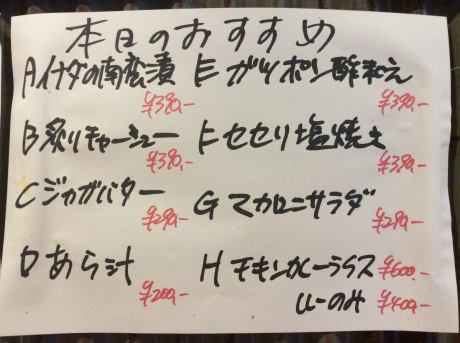 本日のおすすめ
A イナダの南蛮漬 ¥390.-
E ガツポン酢和え ¥390.-
B 炙りチャーシュー ¥390.-
F セセリ塩焼き ¥390.-
C ジャガバター ¥290.-
G マカロニサラダ ¥290.-
D あら汁 ¥200.-
H チキンカレーライス ¥600.-
ルーのみ ¥400.-